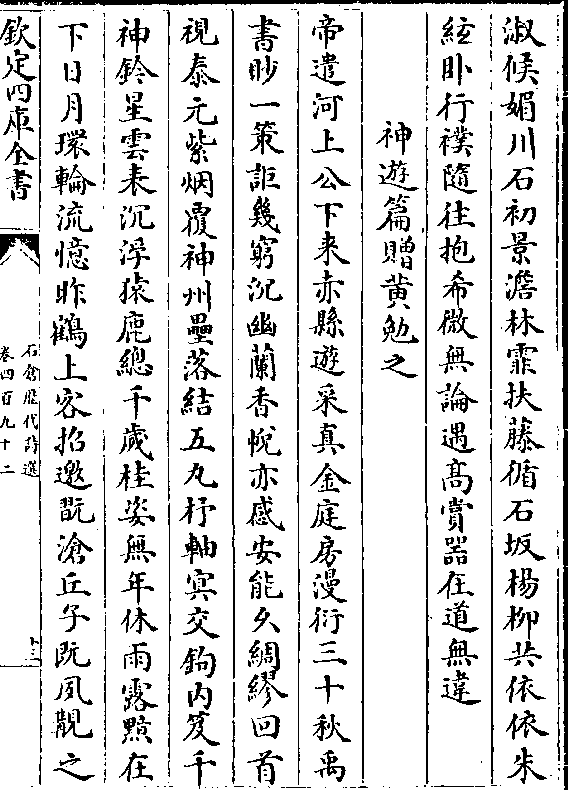 淑候媚川石初景澹林霏扶藤循石坂楊柳共依依朱
絃卧行襆隨往抱希微無論遇髙賞噐在道無違
神遊篇贈黄勉之
帝遣河上公下来赤縣遊采真金庭房漫衍三十秋禹
書眇一策詎幾窮沉幽蘭香恱亦感安能夂綢繆回首
視泰元紫烟覆神州壘落結五丸杼軸冥交鉤内笈千
神鈴星雲表沉浮猿鹿總千歲桂姿無年休雨露㸃在
下日月環輪流憶昨鶴上客招邀翫滄丘子既夙覯之
欽定四庫全書
石倉歷代詩選
卷四百九十二
十三